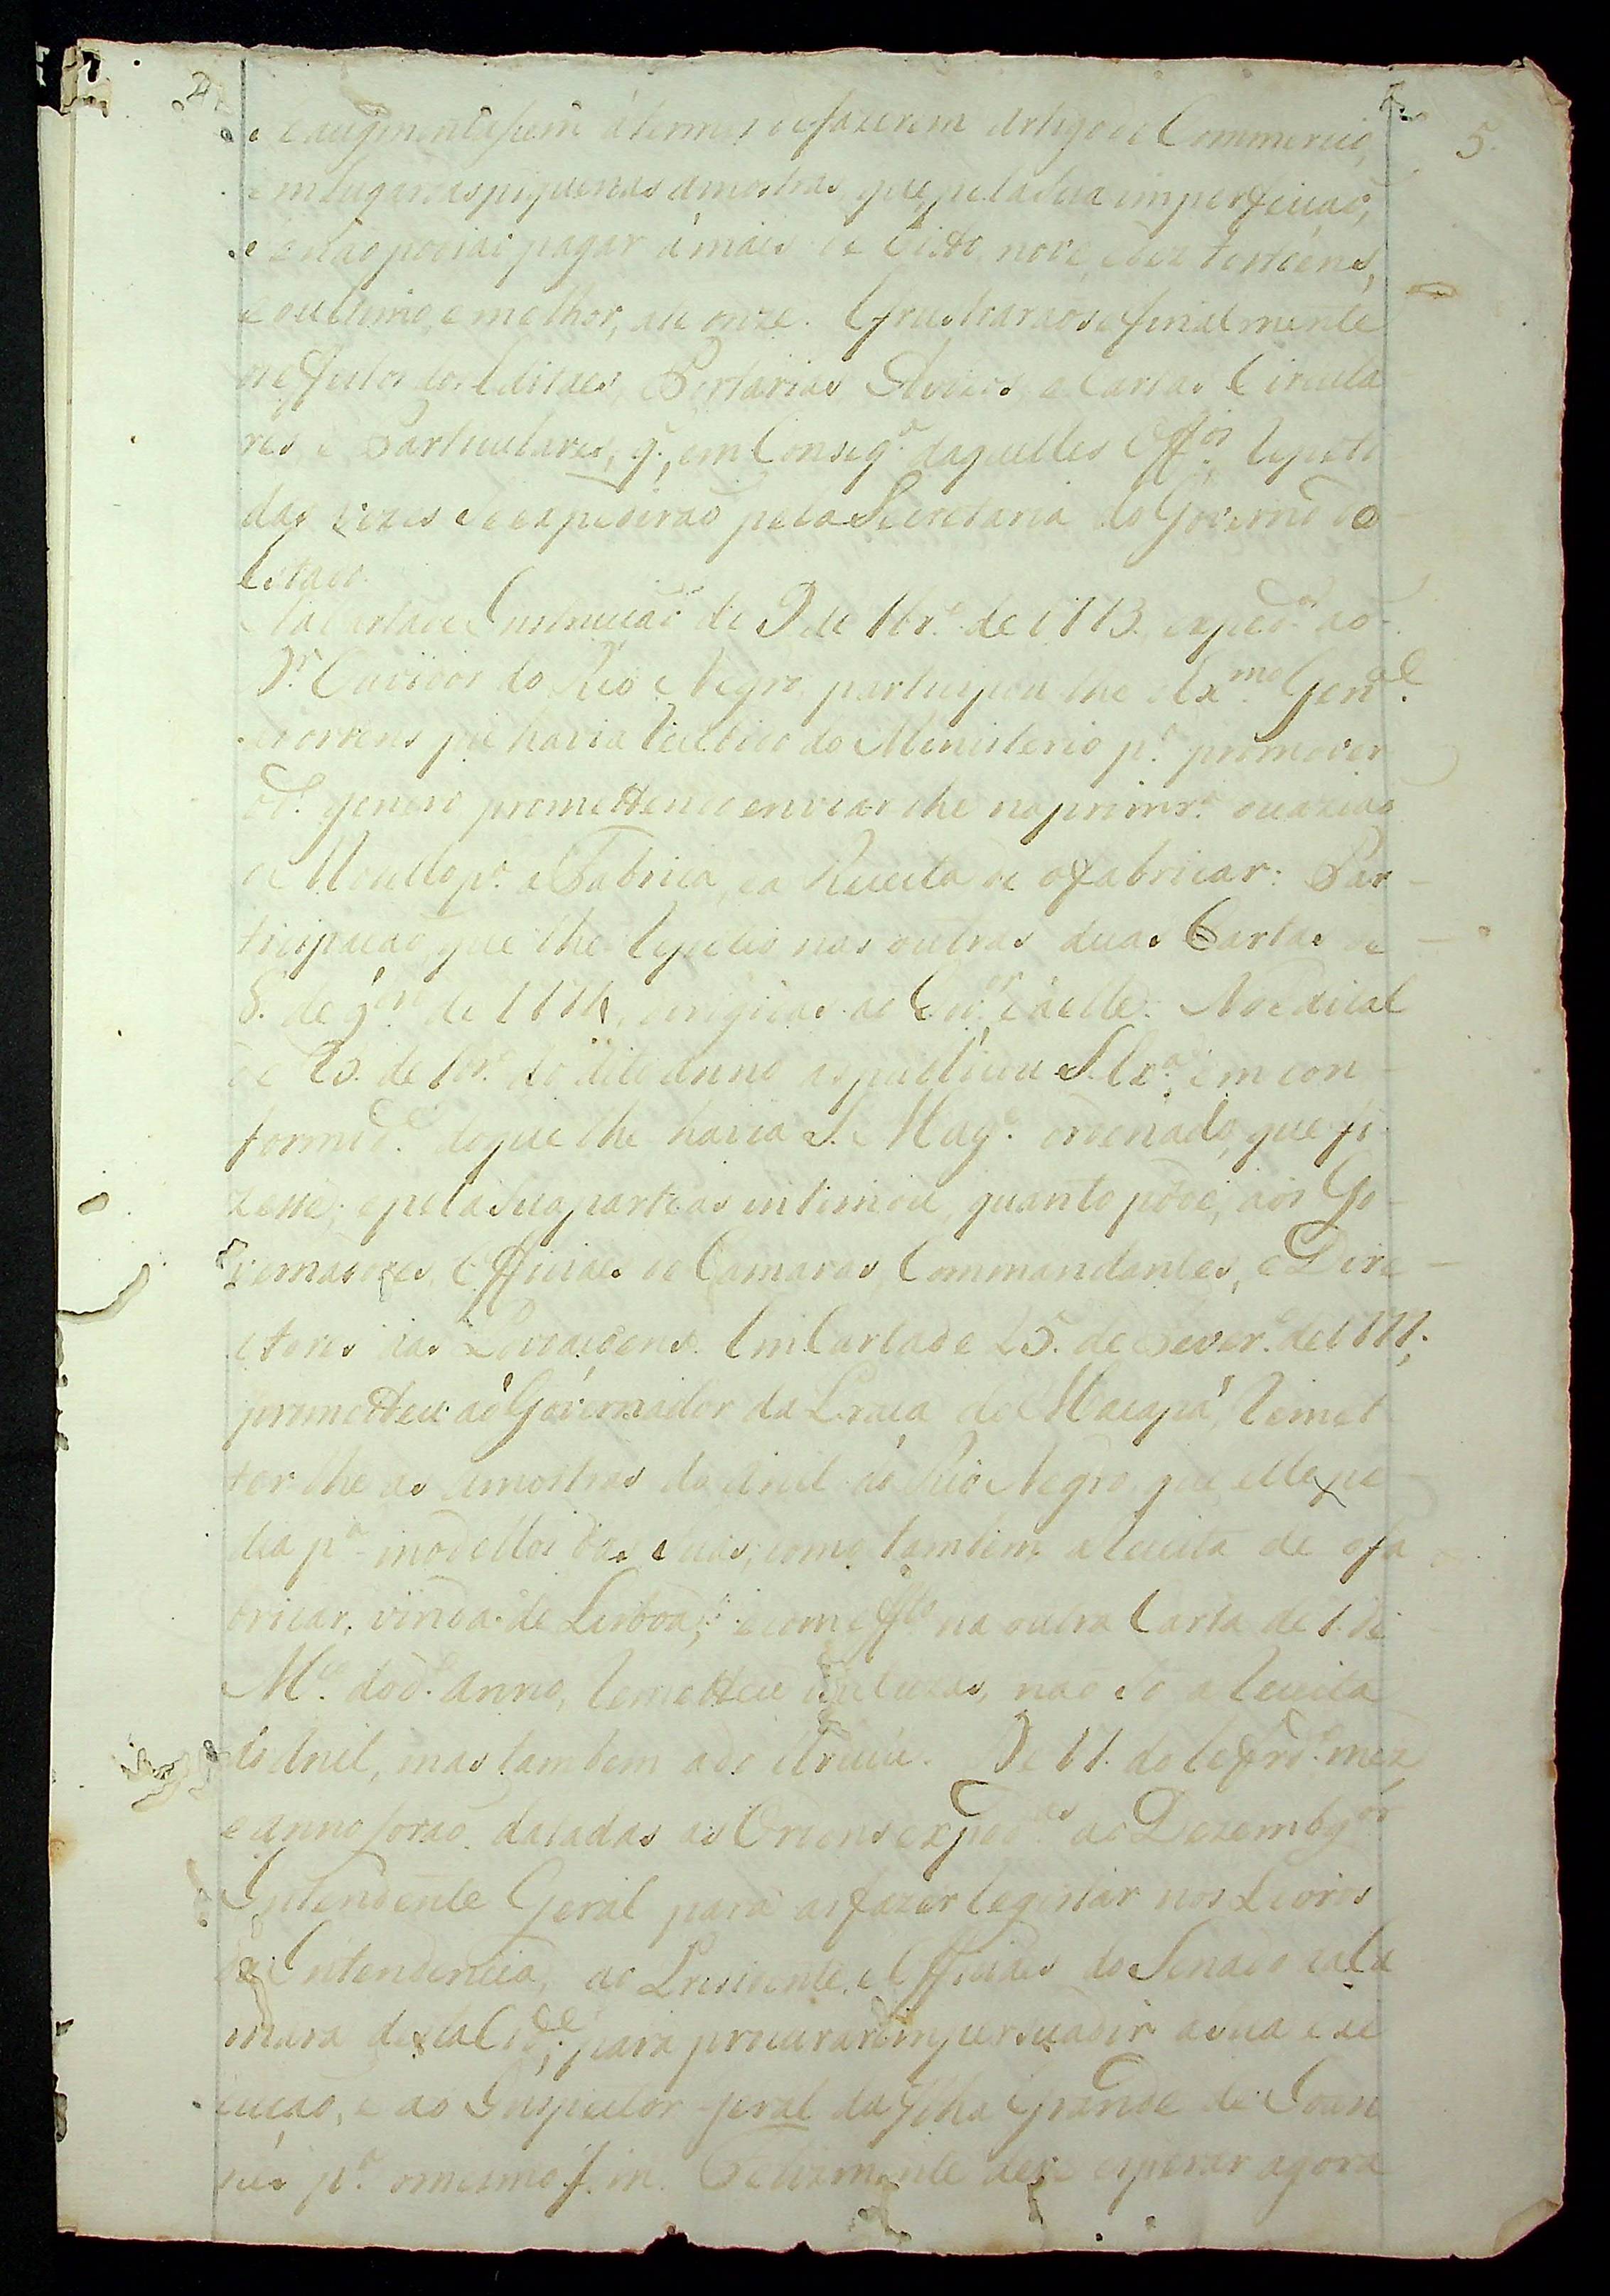 5.
e augmentassem á termos de fazerem artigo de Commercio,
em lugar das piquenas amostras, que, pela sua imperfeiçaõ,
e naõ podiaõ pagar á mais de oitto, nove, e dez tostoens,
e o ultimo, e melhor, até onze. Frustraraõ se finalmente
os effeitos dos Editaes, Portarias, Avizos, e Cartas Circula
res, e Particulares, q., em Conseq.ª daquelles Off.os, repeti
das vezes se expediraõ pela Secretaria do Governo do
Estado.
Na Carta de Instrucçaõ de 9 de 
D.r Ouvidor do Rio Negro, participou lhe o Ex.mo Gen.al
as ordens que havia recebido do Ministerio p.ª promover
o d.º genero promettendo enviar lhe na primr.ª ocaziaõ
o Modello p.ª a Fabrica, e a Receita de o fabricar: Par
ticipaçaõ, que lhe repetio nas outras duas Cartas de
de dirigidas ao e á elle. No Edital
de do dito anno as publicou S. Ex.ª, em con
formid.e do que lhe havia S. Mag.e ordenado, que fi
zesse; e pela sua parte as intimou, quanto pôde, aos Go
vernadores, Officiaes de Camaras, Commandantes, e Dire
ctores das Povoaçoens. Em Carta de 25. de Fever.º de
prometteu ao Governador da Praça de Macapá, remet
ter lhe as amostras do Anil do Rio Negro, que elle pe
dia p.ª modellos das suas, como tambem a receita de o fa
bricar, vinda de Lisboa; e com eff.to na outra Carta de 1. de
M.ço do d.º anno, remetteu incluzas, naõ só a receita
do Anil, mas tambem a do Urucú. De 11. do refrd.º mez
e anno foraõ datadas as Ordens exped.as ao Dezembg.or
Intendente Geral para as fazer registar nos Livros
da Intendencia, ao Presidente, e Officiaes do Senado da Ca
mara desta Cid.e, para procurarem persuadir a sua exe
cuçaõ, e ao Inspector Geral da Ilha Grande de Joan
nes p.ª o mesmo fim. Certamente deve esperar agora